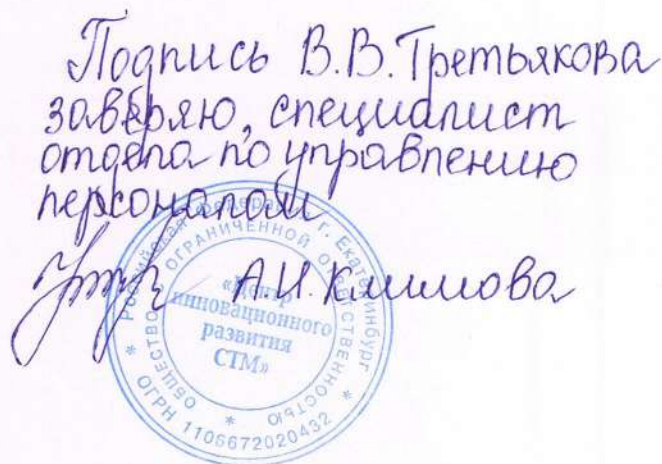 Подпись В.В. Третьякова
заверяю, специалист
отдела по управлению
персоналом
А.И. Климова
Российская Федерация г. Екатеринбург
ОБЩЕСТВО С ОГРАНИЧЕННОЙ ОТВЕТСТВЕННОСТЬЮ
«Центр
инновационного
развития
СТМ»
* ОГРН 1106672020432 *